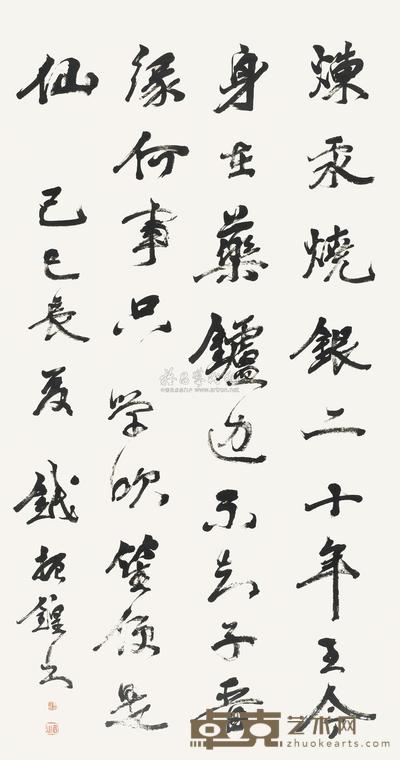 煉汞燒銀二十年至今
身在藥鑪邊不知子晉
緣何事只學吹笙便是
仙 己巳長夏 錢振鍠書
卓克艺术网
zhuokearts.com